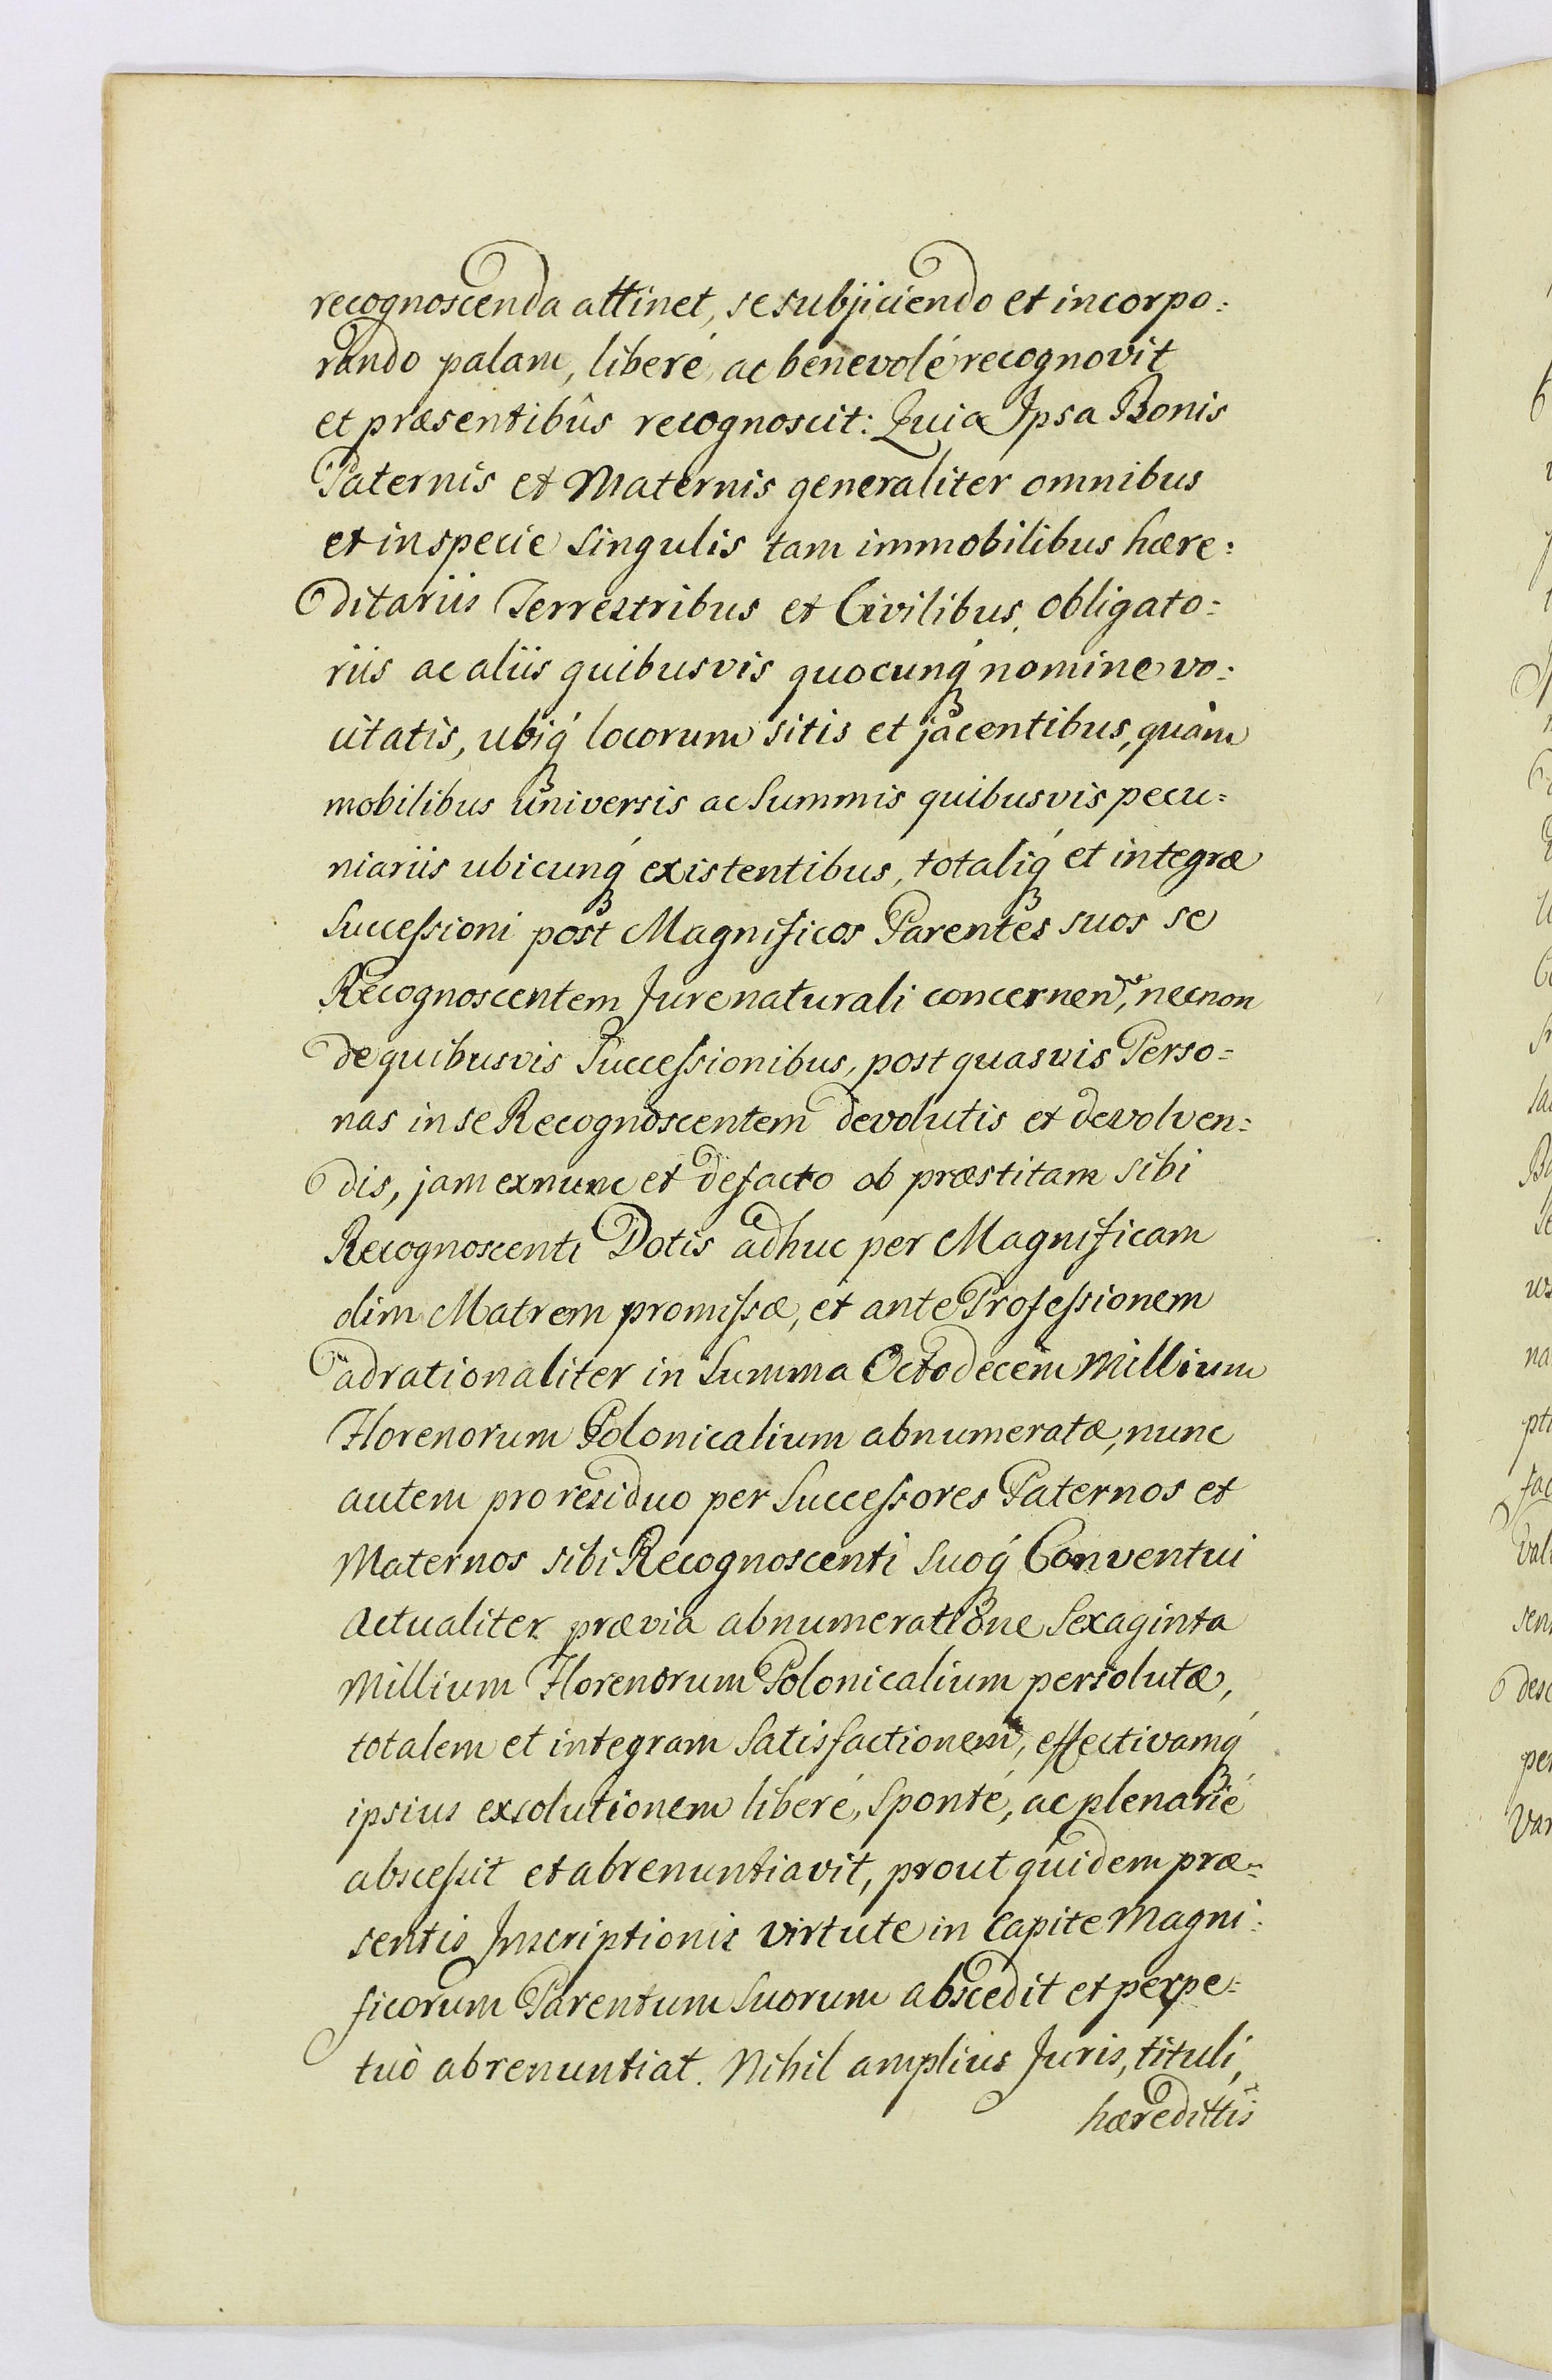 recognoscenda attinet, se subjiciendo et incorpo:
rando palam, liberé, ac benevolé recognovit
et præsentibûs recognoscit: Quia Ipsa Bonis
Paternis et Maternis generaliter omnibus
et in specie singulis tam immobilibus hære:
ditariis Terrestribus et Civilibus, obligato:
riis ac aliis quibusvis quocunq́ nomine vo:
citatis, ubiq́ locorum sitis et jacentibus, quàm
mobilibus universis ac Summis quibusvis pecu:
niariis ubicunq́ existentibus, totaliq́ et integræ
Successioni post Magnificos Parentes suos se
Recognoscentem Jure naturali concernen, necnon
de quibusvis Successionibus, post quasvis Perso:
nas in se Recognoscentem devolutis et devolven:
dis, jam exnunc et defacto ob præstitam sibi
Recognoscenti Dotis adhuc per Magnificam
olim Matrem promissæ, et ante Professionem
adrationaliter in Summa Octodecem Millium
Florenorum Polonicalium abnumeratæ, nunc
autem pro residuo per Successores Paternos et
Maternos sibi Recognoscenti Suoq́ Conventui
Actualiter prævia abnumeratione Sexaginta
Millium Florenorum Polonicalium persolutæ,
totalem et integram Satisfactionem, effectivamq́
ipsius exsolutionem liberé, Sponté, ac plenarié
abscessit et abrenuntiavit, prout quidem præ:
sentis Inscriptionis virtute in Capite Magni:
ficorum Parentum Suorum abscedit et perpe:
tuò abrenuntiat. Nihil amplius Juris, tituli,
hæredittis